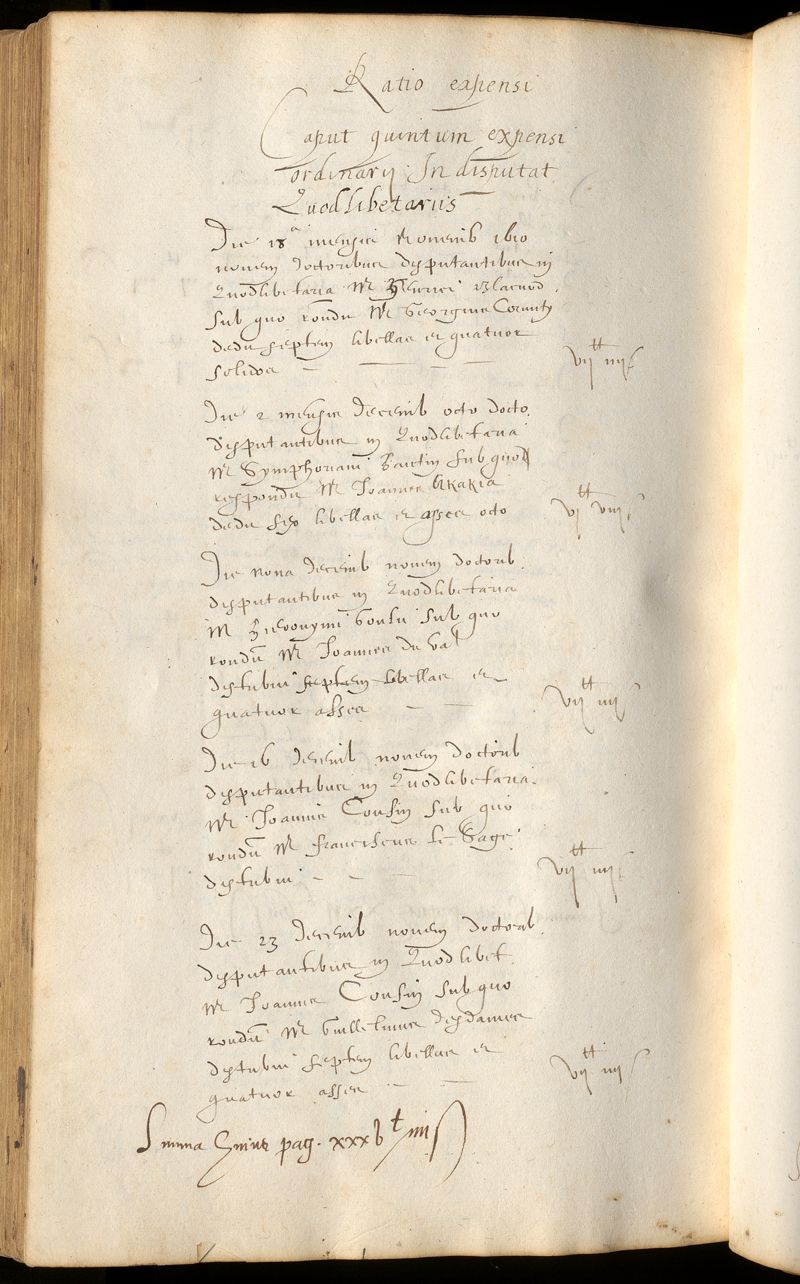 Ratio expensi
Caput quintum expensi
ordinarij In disputat
Quodlibetariis
Die 18ᵃ mensis Novemb 1610
novem doctoribus disputantibus in
Quodlibetaria Mʳⁱ Henrici Blacuod
sub quo rondit Mʳ Georgius Cornuty
dedi septem libellas et quatuor
solidos — — — — vijtt iiijs
Die 2 mensis Decemb octo docto.
disputantibus in Quodlibetaria
Mʳⁱ Symphoriani sub quo
respondit Mʳ Joannes Akakia
dedi sex libellas et asses octo vjtt viijs
Die nona Decemb novem doctorib.
disputantibus in Quodlibetaria
M Hieronymi sub quo
rondit Mʳ Joannes du Val
distribui septem libellas et
quatuor asses — — vijtt iiijs
Die 16 decemb novem doctorib
disputantibus in Quodlibetaria.
Mʳ Joannis Cousin sub quo
rondit Mʳ franciscus le Sage
distribui — — — vijtt iiijs
Die 23 Decemb novem doctorib.
disputantibus in Quodlibet.
Mʳ Joannis Cousin sub quo
rondit Mʳ Guillelmus desdames
distribui septem libellas et
quatuor asses — — vijtt iiijs
Summa huius pag. xxxvtt iiijs